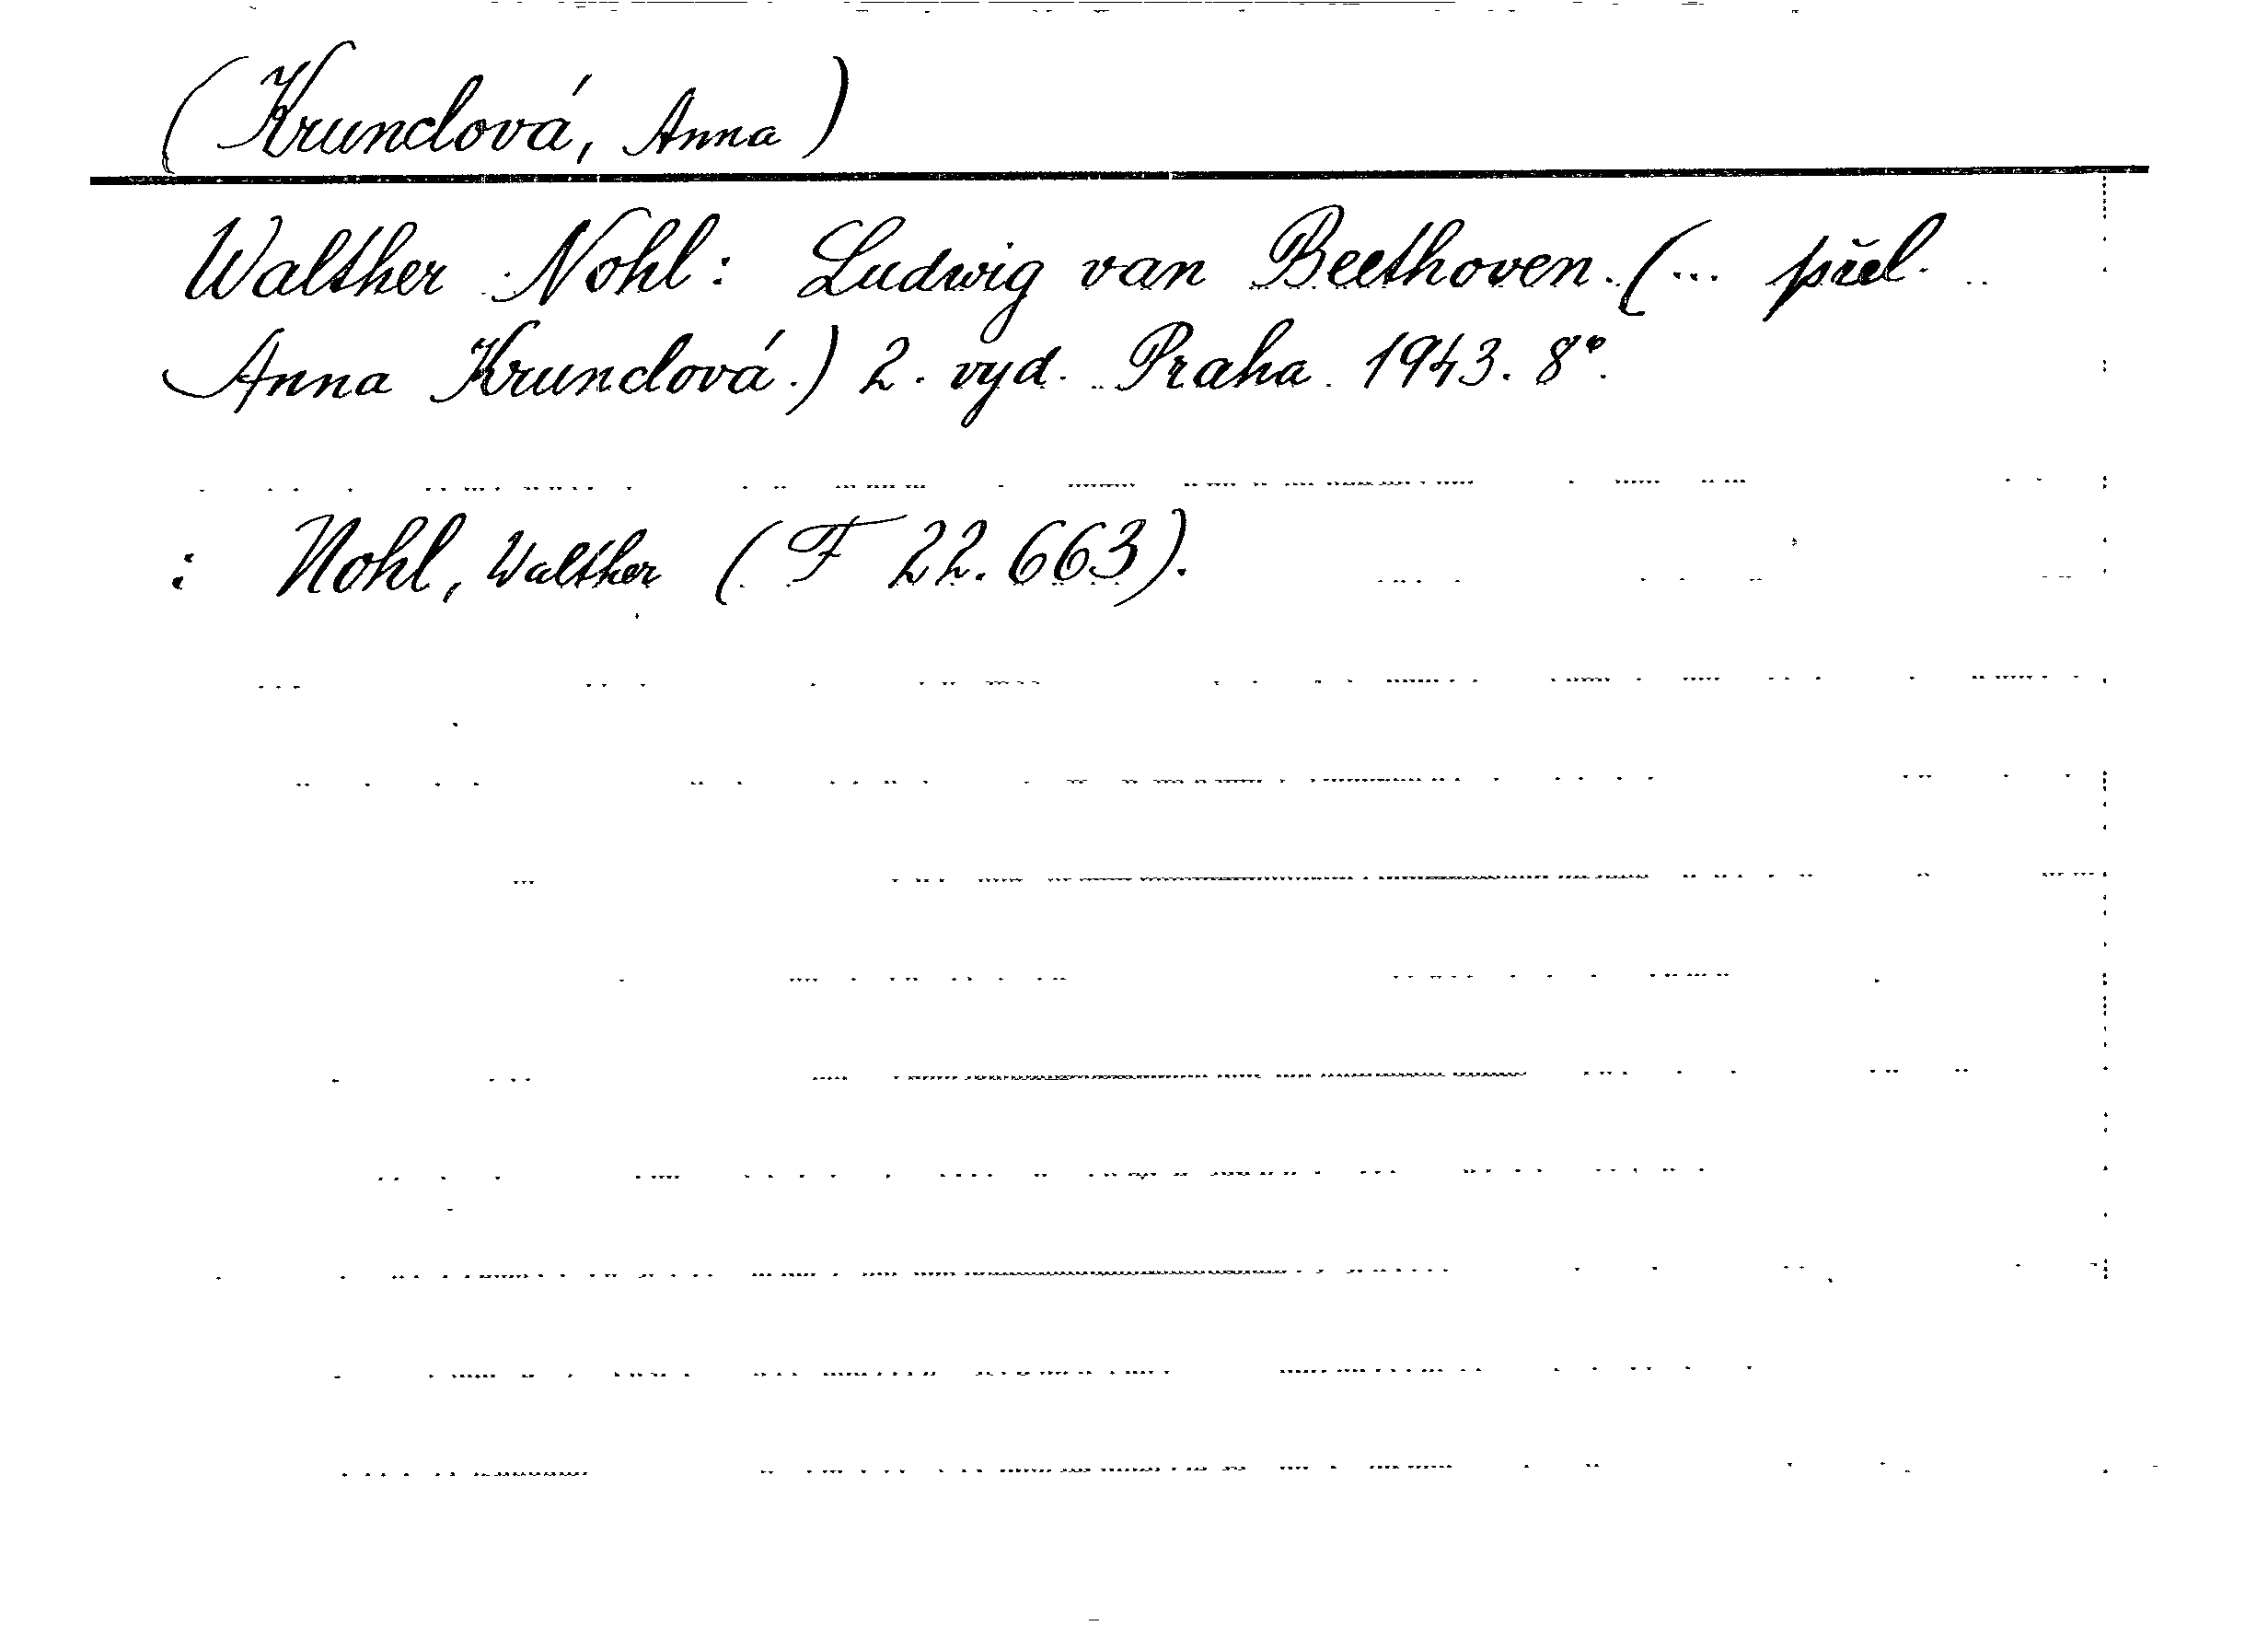 (Krundlová, Anna)
Walther Nohl: Ludwig van Beethoven. (... přel.
Anna Krundlová.) 2. vyd. Praha 1943. 8°.
: Nohl, Walther (F 22.663).